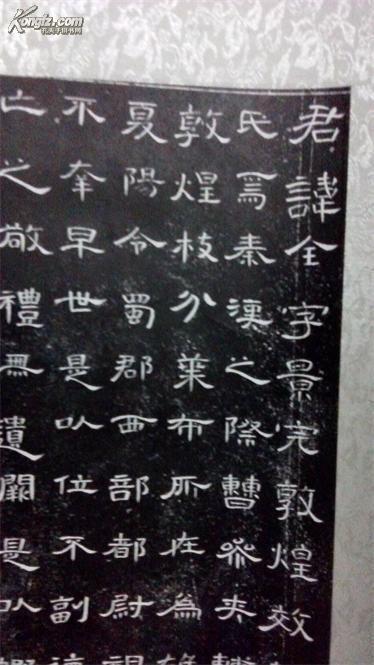 君諱全字景完敦煌效
氏焉秦漢之際曹參夾
敦煌枝分葉布所在為雄
夏陽令蜀郡西部都尉祖
不幸早世是以位不副
亡之敬禮無遺闕是以
Kongfz.com
孔夫子旧书网